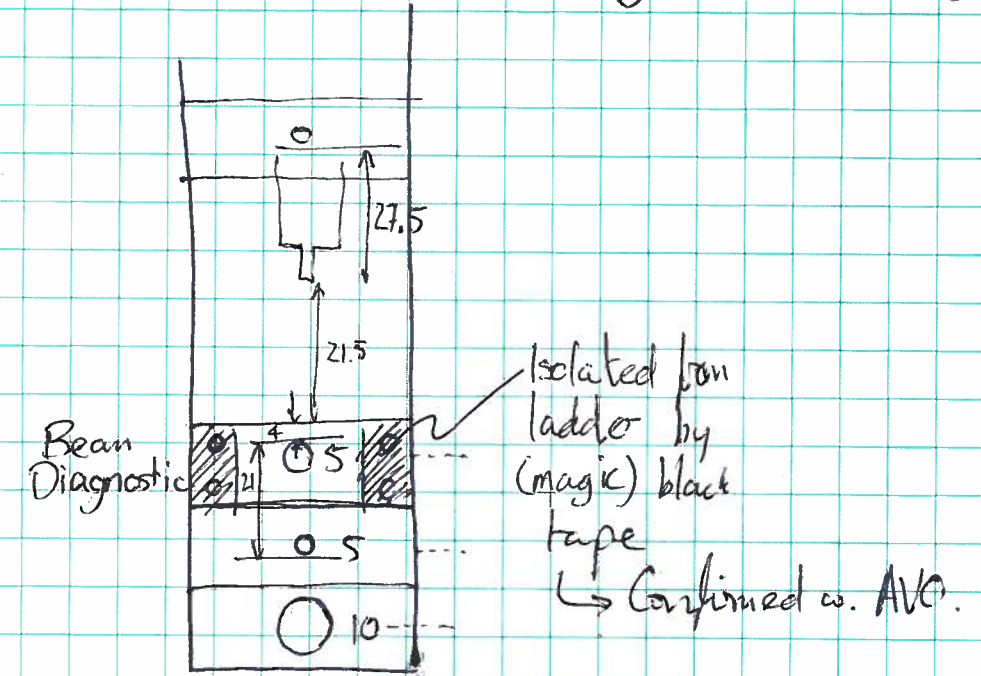 27.5
21.5
Isolated from
ladder by
(magic) black
tape
↳ Confirmed w. AVO.
Beam
Diagnostic
4
5
21
5
10